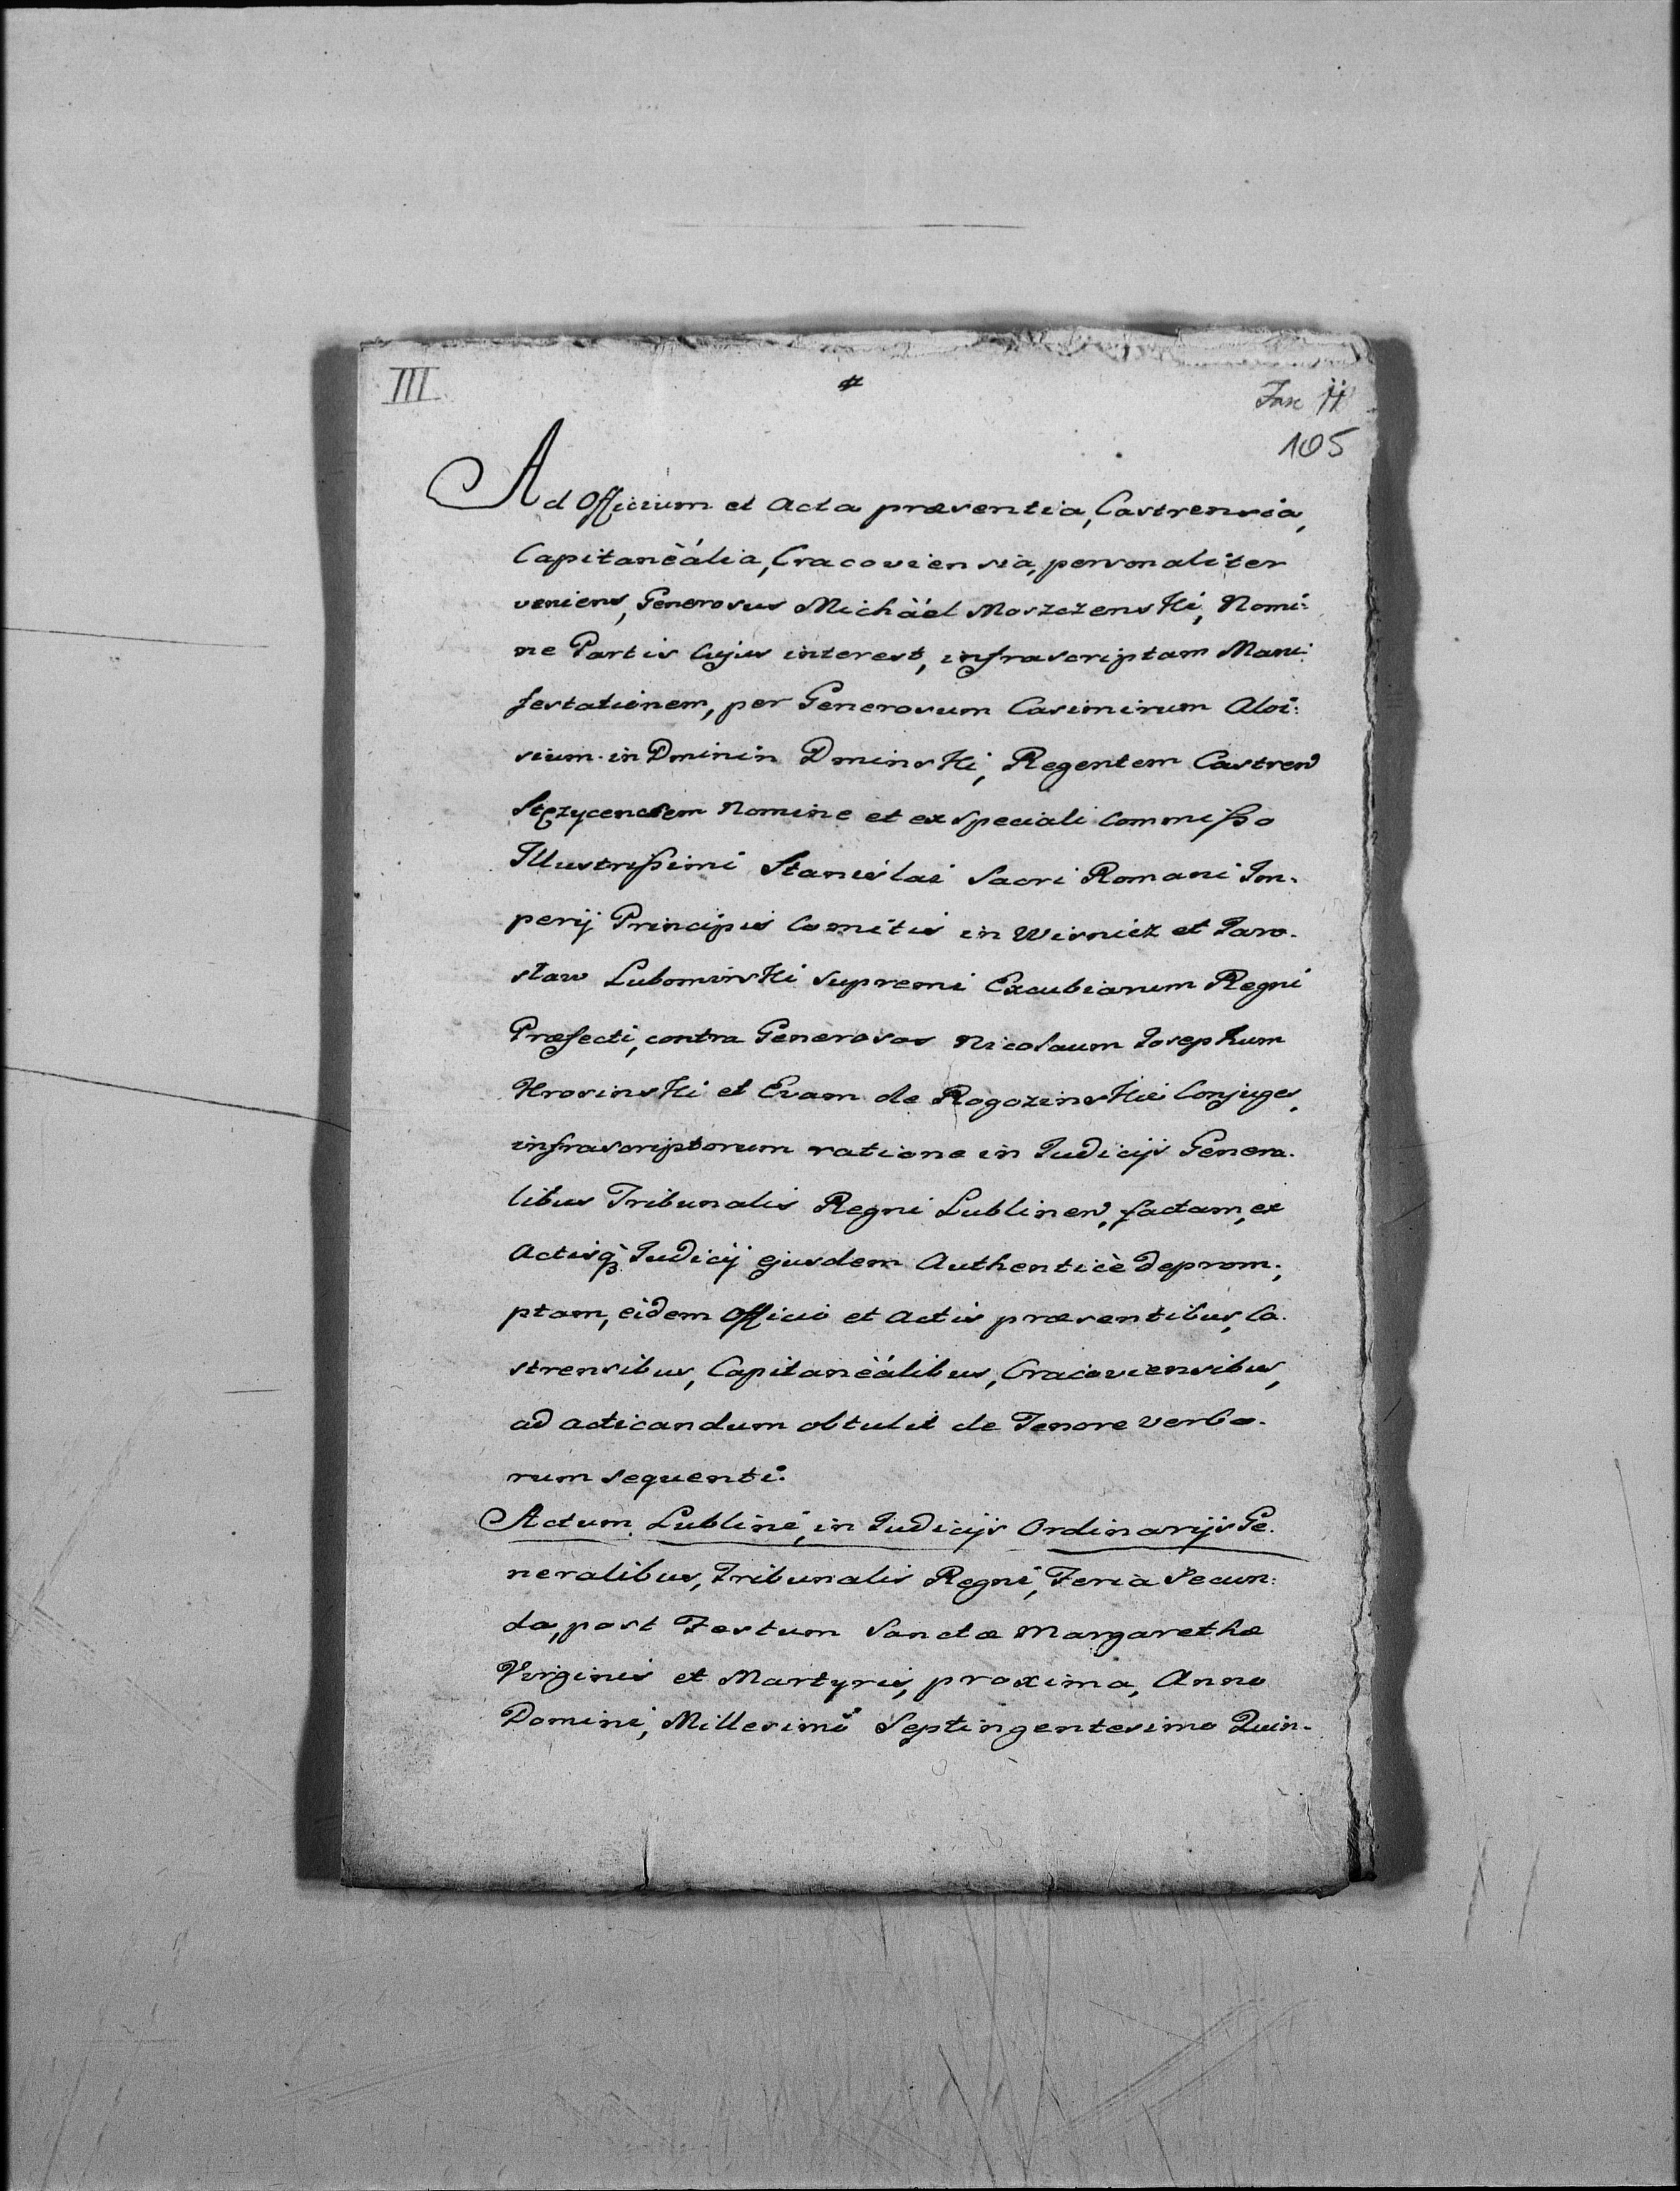 III
#
Fasc II
105
Ad Officium et Acta præsentia, Castrensia,
Capitanèália, Cracoviensia, personaliter
veniens, Generosus Michäel Moszczenski, Nomi:
ne Partis Cujus interest, infrascriptam Mani:
festationem, per Generosum Casimirum Aloi:
sium in Dminin Dminski, Regentem Castren
Stęzycensem Nomine et ex speciali Commißo
Illustrißimi Stanislai Sacri Romani Im.
perij Principis Comitis in Wisnicz et Jaro.
sław Lubomirski Supremi Excubiarum Regni
Præfecti, contra Generosos Nicolaum Josephum
Hrosinski et Evam de Rogozinskie Conjuges,
infrascriptorum ratione in Judicijs Genera.
libus Tribunalis Regni Lublinen, factam, ex
Actisq̀ Judicij ejusdem Authenticè deprom:
ptam, eidem Officio et Actis præsentibus, Ca.
strensibus, Capitanèálibus, Cracoviensibus,
ad acticandum obtulit de Tenore verbo.
rum sequenti.
Actum Lublini, in Judicijs Ordinarijs Ge.
neralibus, Tribunalis Regni, Feria Secun:
da, post Festum Sanctæ Margarethæ
Virginis et Martyris, proxima, Anno
Domini, Millesimo Septingentesimo Quin.